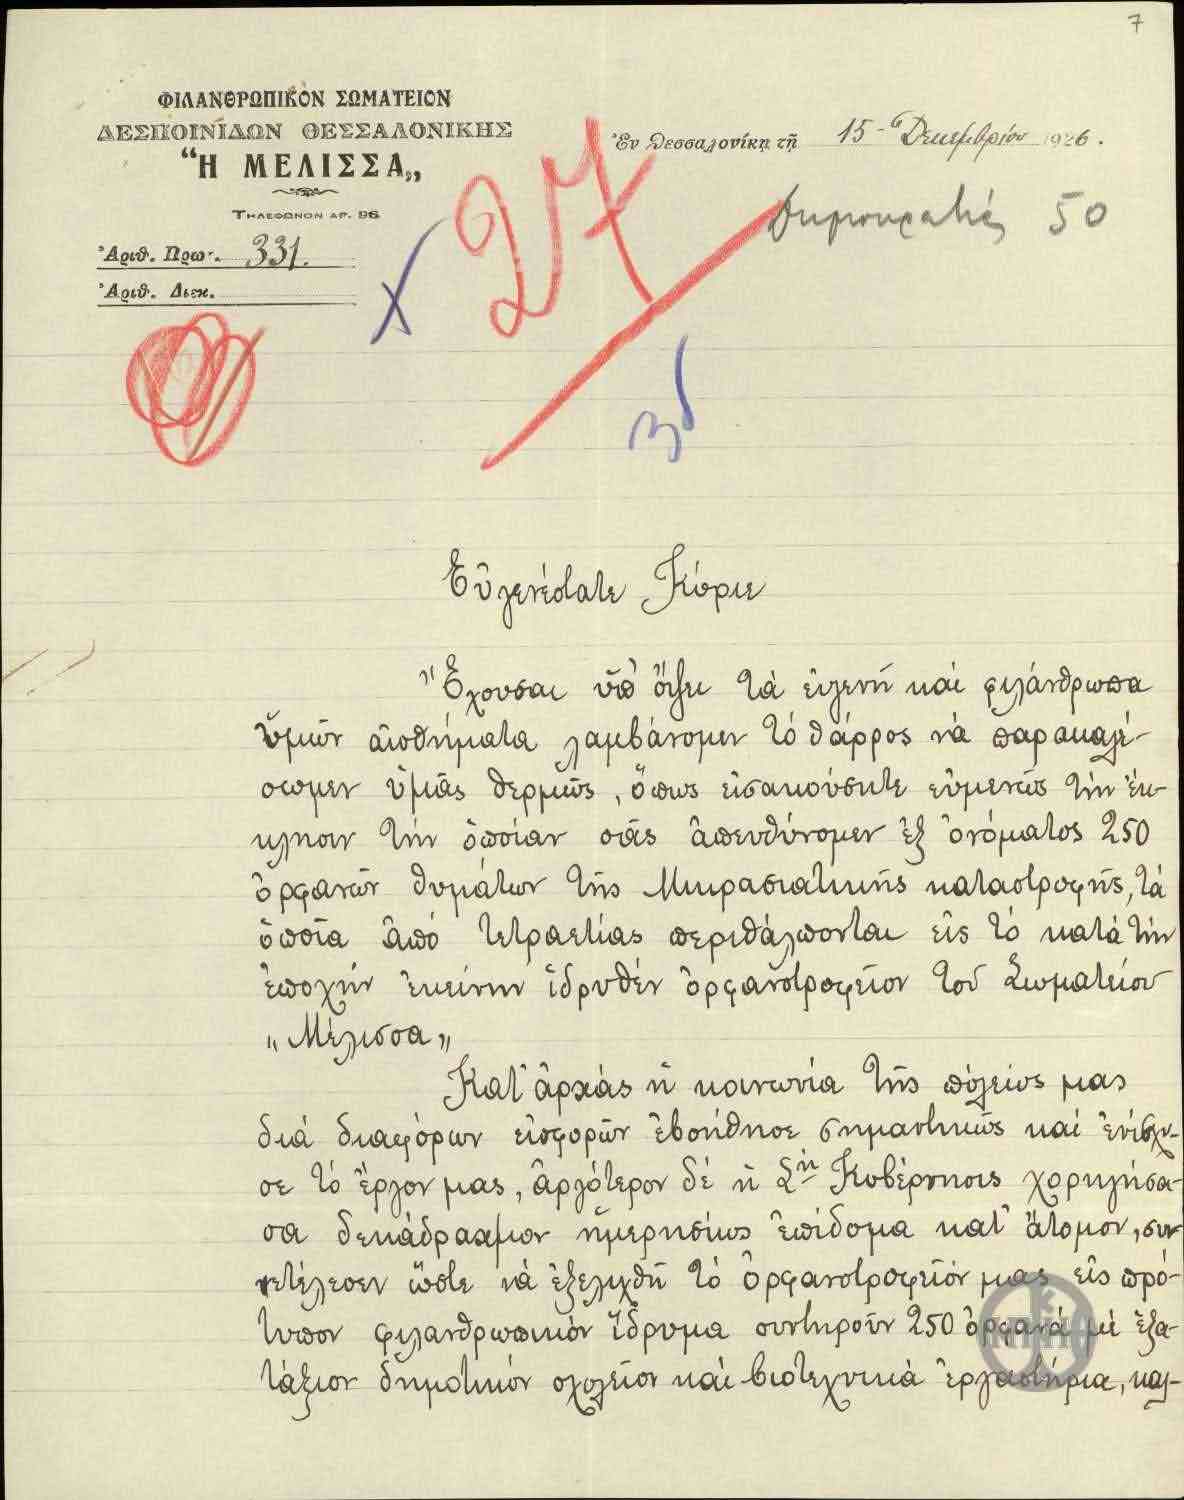 7
ΦΙΛΑΝΘΡΩΠΙΚΟΝ ΣΩΜΑΤΕΙΟΝ
ΔΕΣΠΟΙΝΙΔΩΝ ΘΕΣΣΑΛΟΝΙΚΗΣ
"Η ΜΕΛΙΣΣΑ„
ΤΗΛΕΦΩΝΟΝ ΑΡ. 96
Ἀριθ. Πρωτ. 331.
Ἀριθ. Διεκ.
Ἐν Θεσσαλονίκῃ τῇ 15 - Δεκεμβρίου 1926.
50
27
Εὐγενέστατε Κύριε
Ἔχουσαι ὑπ' ὄψει τὰ εὐγενῆ καὶ φιλάνθρωπα
ὑμῶν αἰσθήματα λαμβάνομεν τὸ θάρρος νὰ παρακαλέ-
σωμεν ὑμᾶς θερμῶς, ὅπως εἰσακούσητε εὐμενῶς τὴν ἔκ-
κλησιν τὴν ὁποίαν σᾶς ἀπευθύνομεν ἐξ ὀνόματος 250
ὀρφανῶν θυμάτων τῆς Μικρασιατικῆς καταστροφῆς, τὰ
ὁποῖα ἀπὸ τετραετίας περιθάλπονται εἰς τὸ κατὰ τὴν
ἐποχὴν ἐκείνην ἱδρυθὲν ὀρφανοτροφεῖον τοῦ Σωματείου
„Μέλισσα„
Κατ' ἀρχὰς ἡ κοινωνία τῆς πόλεώς μας
διὰ διαφόρων εἰσφορῶν ἐβοήθησε σημαντικῶς καὶ ἐνίσχυ-
σε τὸ ἔργον μας, ἀργότερον δὲ ἡ Σὴ Κυβέρνησις χορηγήσα-
σα δεκάδραχμον ἡμερησίως ἐπίδομα κατ' ἄτομον, συν-
ετέλεσεν ὥστε νὰ ἐξελιχθῇ τὸ ὀρφανοτροφεῖόν μας εἰς πρό-
τυπον φιλανθρωπικὸν ἵδρυμα συντηροῦν 250 ὀρφανὰ μὲ ἑξα-
τάξιον δημοτικὸν σχολεῖον καὶ βιοτεχνικὰ ἐργαστήρια, καλ-